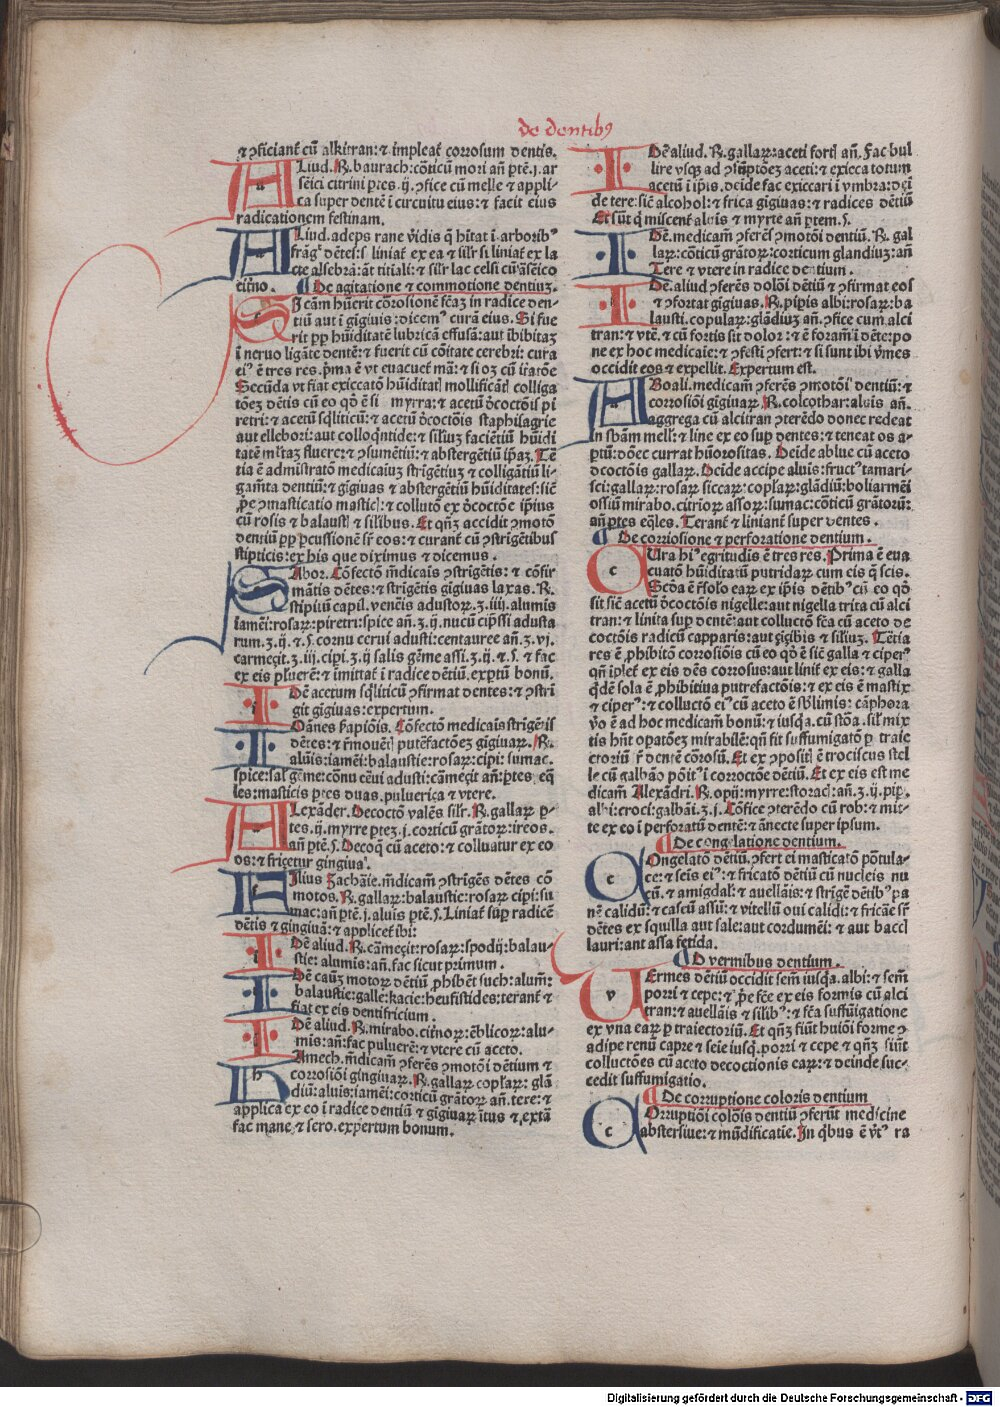 de dentibꝯ
⁊ ꝯficiant̄ cū alkitran: ⁊ impleat̄ corrosum dentis.
ALiud. ℞. baurach: cōticū mori añ ptē. j. ar
sēici citrini ptes. ij. ꝯfice cū melle ⁊ appli
ca super dentē ī circuitu eius: ⁊ facit eius
radicationem festinam.
ALiud. adeps rane v̄idis q̄ hītat ī arboribꝰ
frāgᵗ dētes: si liniat̄ ex ea ⁊ silr si liniat̄ ex la
cte
citrīo. ¶ De agitatione ⁊ commotione dentiuꝫ.
SI cām hūerit cōrosionē fcāꝫ in radice den-
tiū aut ī gigiuis: dicemꝰ curā eius. Si fue
rit ꝓp hūiditatē lubricā effusā: aut ībibitaꝫ
ī neruo ligāte dentē: ⁊ fuerit cū cōitate cerebri: cura
eiꝰ ē tres res. p̄ma ē vt euacuet̄ mā: ⁊ si oꝫ cū iteratōe
Secūda vt fiat exiccatō hūiditatꝭ mollificātꝭ colliga
tōeꝫ dētis cū eo qd̄ ē sic myrra: ⁊ acetū d̓coctōis pi
retri: ⁊ acetū sq̄liticū: ⁊ acetū d̓coctōis staphisagrie
aut ellebori: aut colloq̄ntide: ⁊ siliuꝫ faciētiū hūidi
tatē mltaꝫ fluere: ⁊ ꝯsumētiū: ⁊ abstergētiū ip̄aꝫ. Ter
tia ē admīstratō medicaiuꝫ strigētiuꝫ ⁊ colligātiū li-
gam̄ta dentiū: ⁊ gigiuas ⁊ abstergētiū hūiditates: sic
ꝓpe ꝯmasticatio masticꝭ: ⁊ collutō ex d̓coctōe ip̄ius
cū rosis ⁊ balaustꝭ ⁊ silibus. Et qñꝫ accidit ꝯmotō
dentiū ꝓp ꝑcussionē sr̄ eos: ⁊ curant̄ cū ꝯstrigētibus
stipticis: ex his que diximus ⁊ dicemus.
SAbor. Cōfectō m̄dicais ꝯstrigētis: ⁊ cōfir
mātis dētes: ⁊ strigētis gigiuas laxas. ℞.
stipitū capil. venēis adustoꝝ. ʒ. iiij. alumis
iamēi: rosaꝝ: piretri: spice añ. ʒ. ij. nucū cip̄ssi adusta
rum. ʒ. ij. ⁊. s. cornu cerui adusti: centauree añ. ʒ. vj.
carmegit. ʒ. iij. cipi. ʒ. ij salis gēme assi. ʒ. ij. ⁊. s. ⁊ fac
ex eis pluuerē: ⁊ imittat̄ ī radice dētiū. exptū bonū.
IDē acetum sq̄liticū ꝯfirmat dentes: ⁊ ꝯstrī
git gigiuas: expertum.
IOānes ẜapiōis. Cōfectō medicais strigētis
dētes: ⁊ r̄mouētꝭ putēfactōeꝫ gigiuaꝝ. ℞.
aluīs: iamēi: balaustie: rosaꝝ: cipi: sumac.
spice: sal gēme: cōnu cēui adusti: cāmegit añ: ptes. eq̄
les: masticis ptes duas. puluerica ⁊ vtere.
ALexāder. Decocto valēs silr. ℞. gallaꝝ p-
tes. ij. myrre pteꝫ. j. corticū grātoꝝ: ireos.
añ ptē. s. Decoq̄ cū aceto: ⁊ colluatur ex eo
os: ⁊ fricetur gingiuaꝰ.
FIlius Zachāie. m̄dicam̄ ꝯstrigēs dētes cō
motos. ℞. gallaꝝ: balaustie: rosaꝝ: cipi: su
mac: añ ptē. j. aluīs ptē. s. Liniat̄ suꝑ radicē
dētis ⁊ gingiuā: ⁊ applicet̄ ibi:
IDē aliud. ℞. cāmegit: rosaꝝ: spodij: balau-
stie: alumis: añ. fac sicut primum.
IDē cauꝫ motoꝝ dētiū ꝓhibēt such: alum̄:
balaustie: galle: kacie: heufistides: terant̄ ⁊
fiat ex eis dentifricium.
IDē aliud. ℞. mirabo. citrīoꝝ: ēblicoꝝ: alu-
mis: añ: fac puluerē: ⁊ vtere cū aceto.
HAmech. m̄dicam̄ ꝯferēs ꝯmotōi dētium ⁊
corrosiōi gingiuaꝝ. ℞. gallaꝝ coplaꝝ: glā
diū: aluis: iamēi: corticū grātoꝝ añ. tere: ⁊
applica ex eo ī radice dentiū ⁊ gigiuaꝝ ītus ⁊ extā
fac mane ⁊ sero. expertum bonum.
IDē aliud. ℞. gallaꝝ: aceti fortꝭ añ. Fac bul
lire vsqꝫ ad ꝯsūptōeꝫ aceti: ⁊ exicca totum
acetū ī ip̄is. deide fac exiccari ī vmbra: dei
de tere: sic alcohol: ⁊ frica gigiuas: ⁊ radices dētiū
Et sūt q̄ miscent̄ aluis ⁊ myrte añ ptem. s.
IDē. medicam̄ ꝯferēs ꝯmotōi dentiū. ℞. gal
laꝝ: cōticū grātoꝝ: corticum glandiuꝫ: añ
Tere ⁊ vtere in radice dentium.
IDē. aliud ꝯferēs dolōi dētiū ⁊ ꝯfirmat eos
⁊ ꝯfortat gigiuas. ℞. pipis albi: rosaꝝ: ba
lausti. copulaꝝ: glādiuꝫ añ. ꝯfice cum alci
tran: ⁊ vtē. ⁊ cū fortis sit dolor: ⁊ ē foramē ī dēte: po
ne ex hoc medicaie: ⁊ ꝯfestī ꝯfert: ⁊ si sunt ibi v̄mes
occidit eos ⁊ expellit. Expertum est.
ABoali. medicam̄ ꝯferēs ꝯmotōi dentiū: ⁊
corrosiōi gigiuaꝝ. ℞. colcothar: aluis añ.
aggrega cū alcitran ꝯterēdo donec redeat
in sbām mell: ⁊ line ex eo suꝑ dentes: ⁊ teneat os a-
ptū: dōec currat hūorositas. Deide ablue cū aceto
dcoctōis gallaꝝ. Deide accipe aluis: fructꝰ tamari-
sci: gallaꝝ: rosaꝝ siccaꝝ: coplaꝝ: glādiū: boliarmēi
ossiū mirabo. citrioꝝ assoꝝ: sumac: cōticū grātorū:
añ ptes eq̄les. Terant̄ ⁊ liniant̄ super dentes.
¶ De corrosione ⁊ perforatione dentium.
CUra hiꝰ egritudis ē tres res. Prima ē eua
cuatō hūiditatū putridaꝝ cum eis q̄ scis.
Scda ē r̄solo eaꝝ ex ip̄is dētibꝰ cū eo qd̄
sit sic acetū d̓coctōis nigelle: aut nigella trita cū alci
tran: ⁊ linita suꝑ dentē: aut collutō fcā cū aceto de
coctōis radicū capparis: aut gigibis ⁊ siliuꝫ. Tētia
res ē ꝓhibitō corrosiōis cū eo qd̄ ē sic galla ⁊ ciperꝰ
qñ iplet̄ ex eis dēs corrosus: aut linit̄ ex eis: ⁊ galla
q̄dē sola ē ꝓhibitiua putrefactōis: ⁊ ex eis ē mastix
⁊ ciperꝰ: ⁊ collutō eiꝰ cū aceto ē sublimis: cāphora
v̄o ē ad hoc medicam̄ bonū: ⁊ iusqa. cū stōa. sil mix
tis hñt oꝑatōeꝫ mirabilē: qñ fit suffumigatō ꝑ traie
ctoriū sr̄ dentē cōrosū. Et ex ꝯpositꝭ ē trociscus stel
le cū galbāo pōitꝰ ī corroctōe dētiū. Et ex eis est me
dicam̄ Alexādri. ℞. opij: myrre: storacꝭ: añ. ʒ. ij. pip.
albi: croci: galbāi. ʒ. j. Cōfice ꝯterēdo cū rob: ⁊ mit-
te ex eo ī perforatū dentē: ⁊ ānecte super ipsum.
¶ De congelatione dentium.
COngelatō dētiū ꝯfert ei masticatō pōtula-
ce: ⁊ seīs eiꝰ: ⁊ fricatō dētiū cū nucleis nu
cū. ⁊ amigdal: ⁊ auellāis: ⁊ strigē dētibꝰ pa
nē calidū: ⁊ caseū assū: ⁊ vitellū oui calidi: ⁊ fricāe sr̄
dētes ex squilla aut sale: aut cordumēi: ⁊ aut baccꝭ
lauri: aut assa fetida.
¶ D vermibus dentium.
VErmes dētiū occidit sem̄ iusqa. albi: ⁊ sem̄
porri ⁊ cepe: ⁊ ꝓpe fcē ex eis formis cū alci
tran: ⁊ auellāis ⁊ silibꝰ: ⁊ fcā suffūigatione
ex vna eaꝝ ꝑ traiectoriū. Et qñꝫ fiūt huiōi forme ꝯ
adipe renū capre ⁊ seie iusq. porri ⁊ cepe ⁊ qñꝫ siūt
collutōes cū aceto decoctionis earꝝ: ⁊ deinde suc-
cedit suffumigatio.
¶ De corruptione coloris dentium
COrruptiōi colōis dentiū ꝯferūt medicine
abstersiue: ⁊ mūdificatie. In qbus ē v̄tꝰ ra
Digitalisierung gefördert durch die Deutsche Forschungsgemeinschaft - DFG